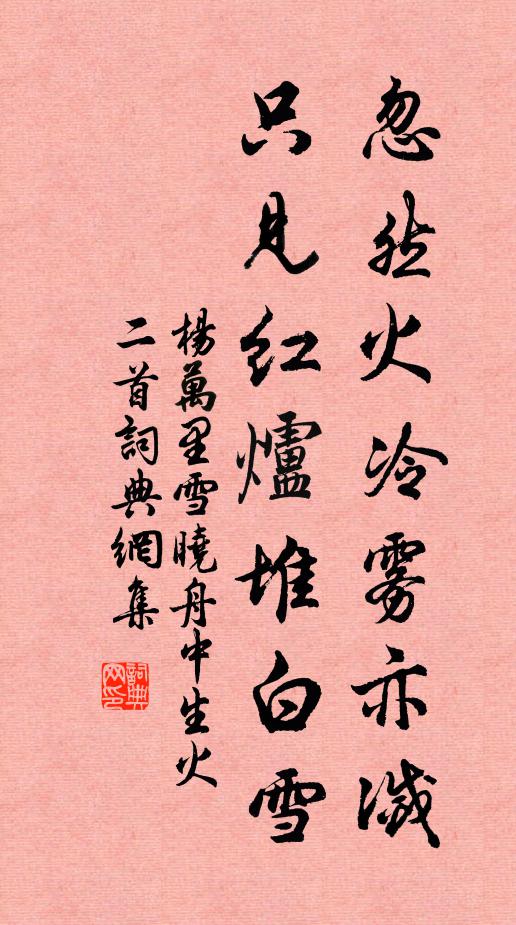 忽然火冷雾亦灭
只见红爐堆白雪
楊萬里雪曉舟中生火
二首詞典網集
詞典
网印